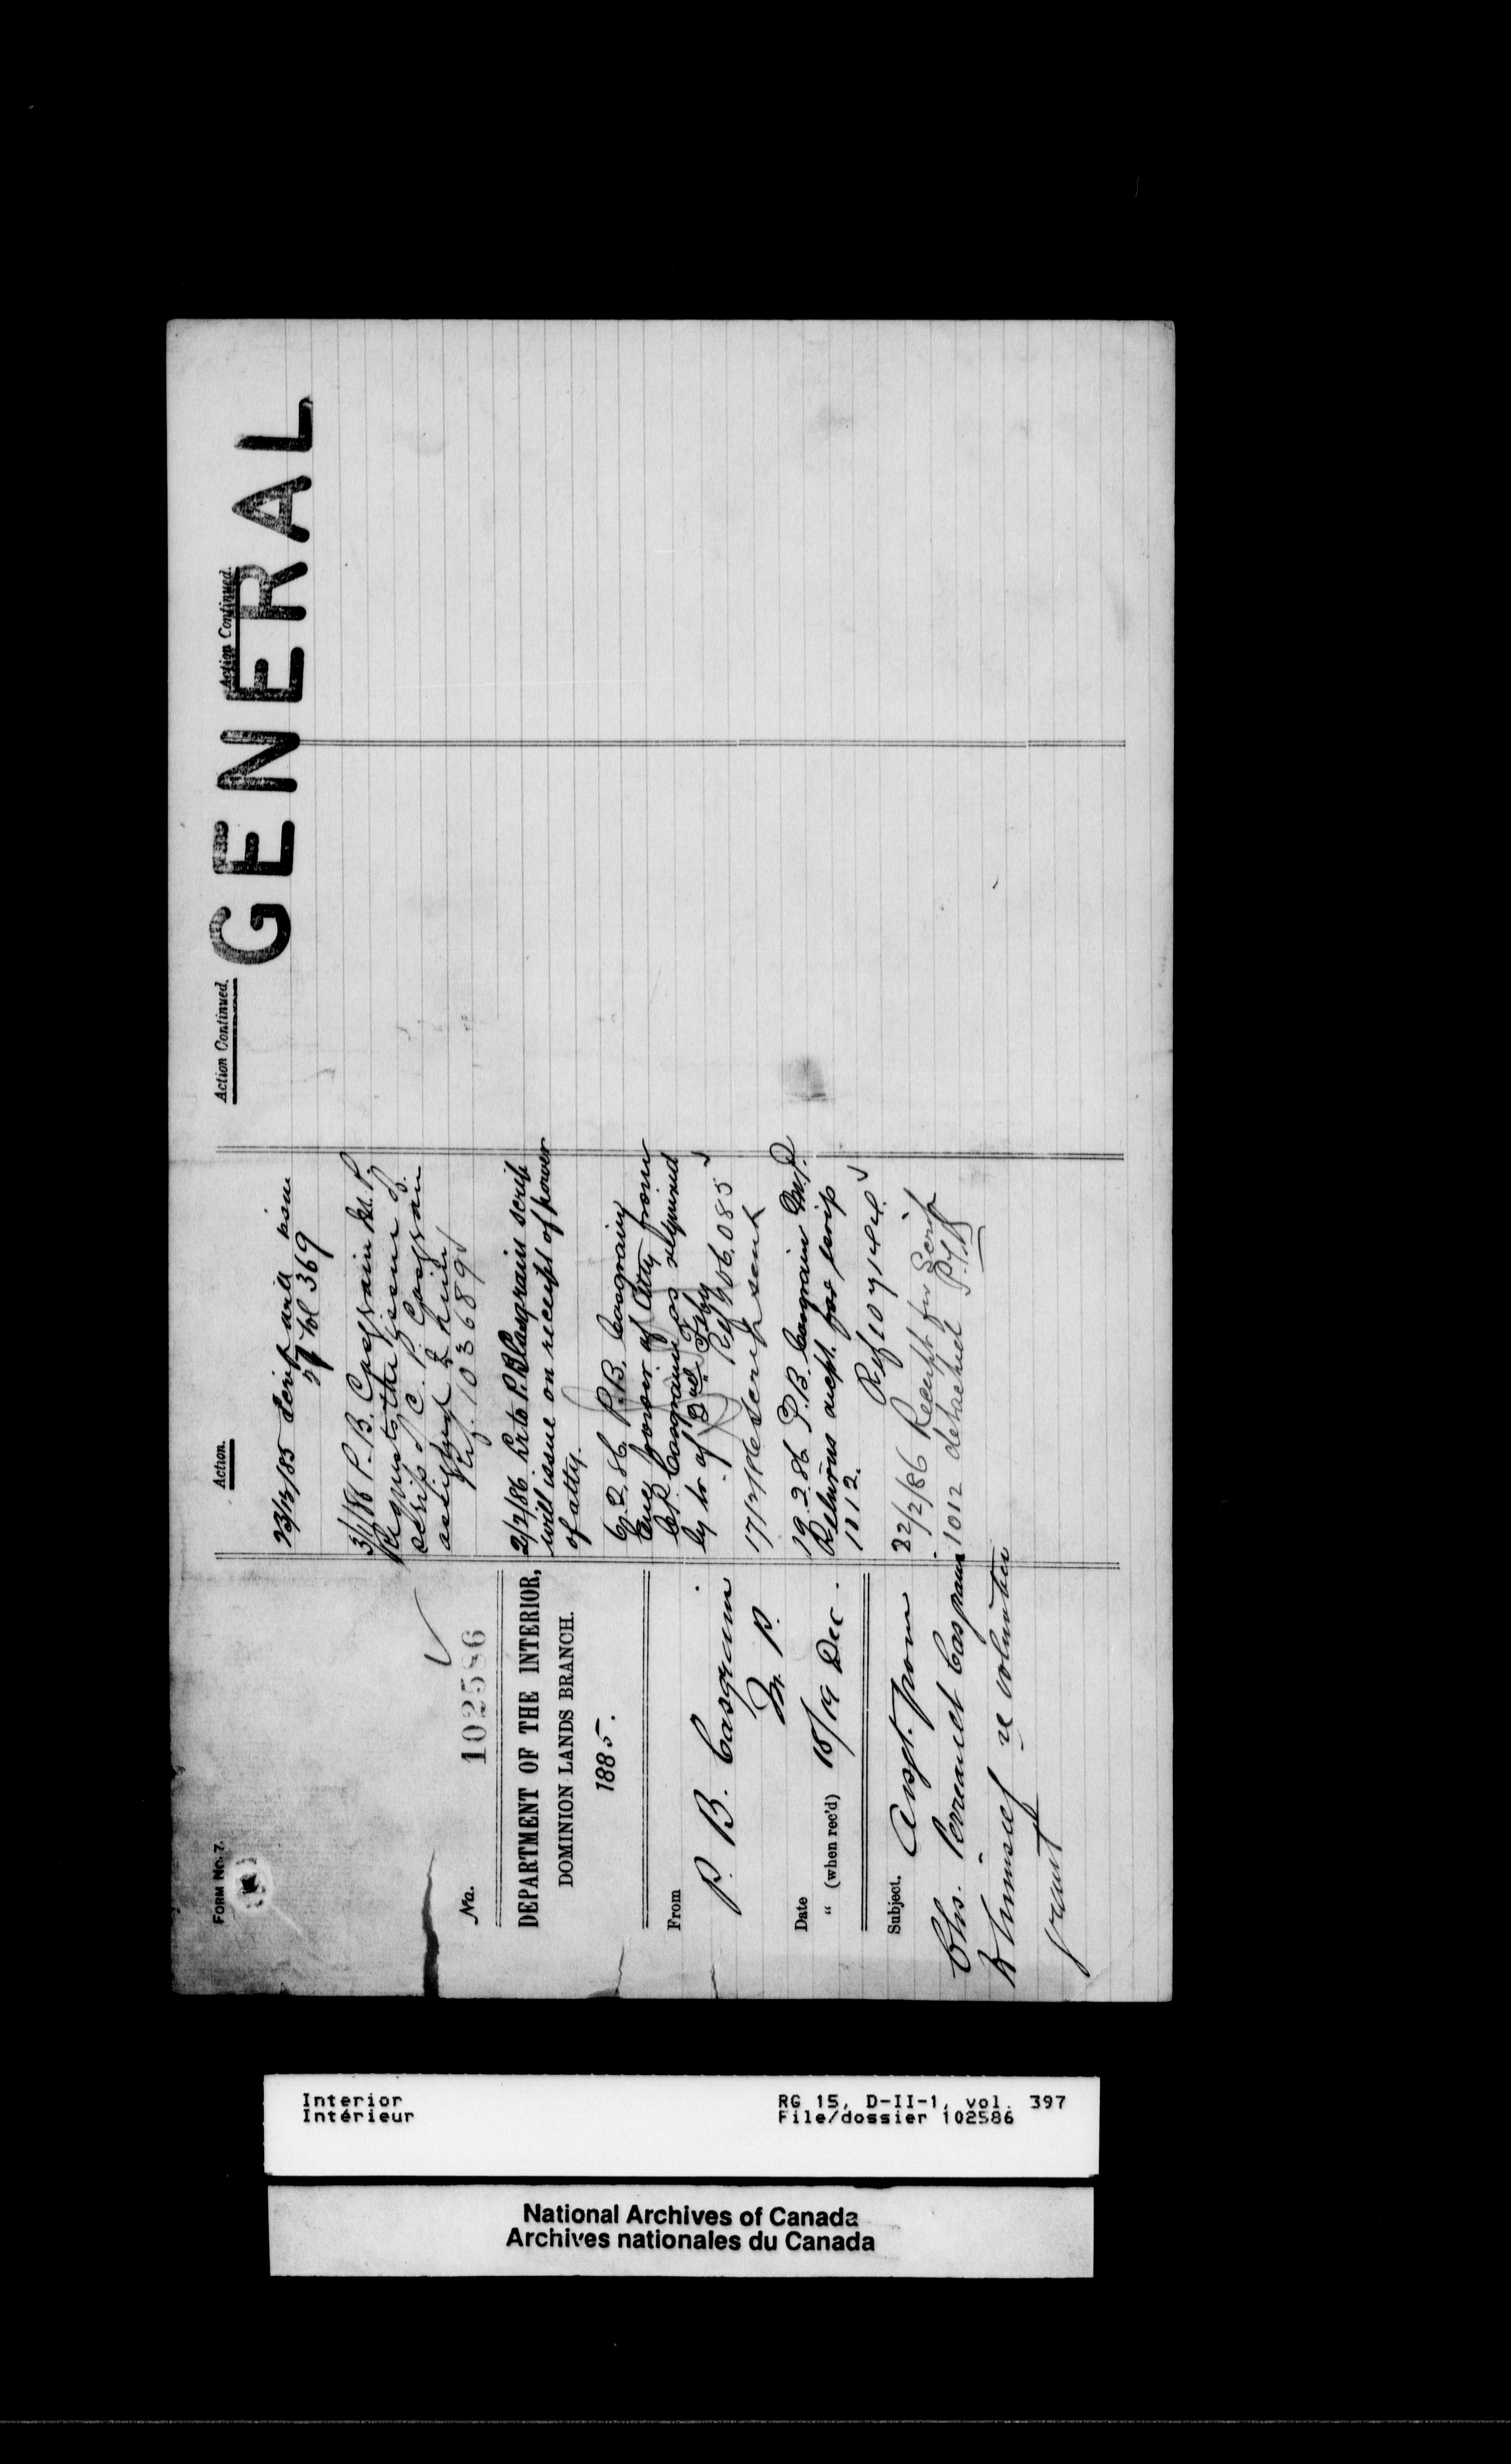 FORM No. 7.
No. 102586
DEPARTMENT OF THE INTERIOR,
DOMINION LANDS BRANCH.
1885.
From
P. B. Casgrain
M. P.
Date 18/19 Dec.
" (when rec'd)
Subject. Asgt. from
Chs. Perrault Casgrain
to himself re volunteer
grant
Action.
23/12/85 Scrip will issue
fol 369
3/1/86 P. B. Casgrain M. P.
Requests the issue of
scrip of C. P. Casgrain
assigned to him
Ref. 103689
2/2/86 Lr to P. B. Casgrain scrip
will issue on receipt of power
of atty.
6.2.86 P. B. Casgrain
Enc power of Atty from
C. P. Casgrain as required
by lr of 2nd Feby
Ref 106,085
17/2/86 Scrip sent
19.2.86 P. B. Casgrain M.P.
Returns rcpt. for scrip
1012.
Ref 107144
22/2/86 Receipt for Scrip
1012 detached
Action Continued.
Action Continued.
GENERAL
Interior
Intérieur
RG 15, D-II-1, vol. 397
File/dossier 102586
National Archives of Canada
Archives nationales du Canada